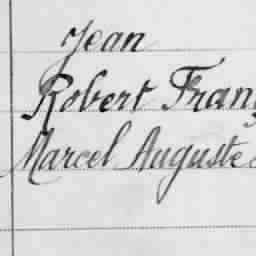 Jean
Robert Fran
Marcel Auguste